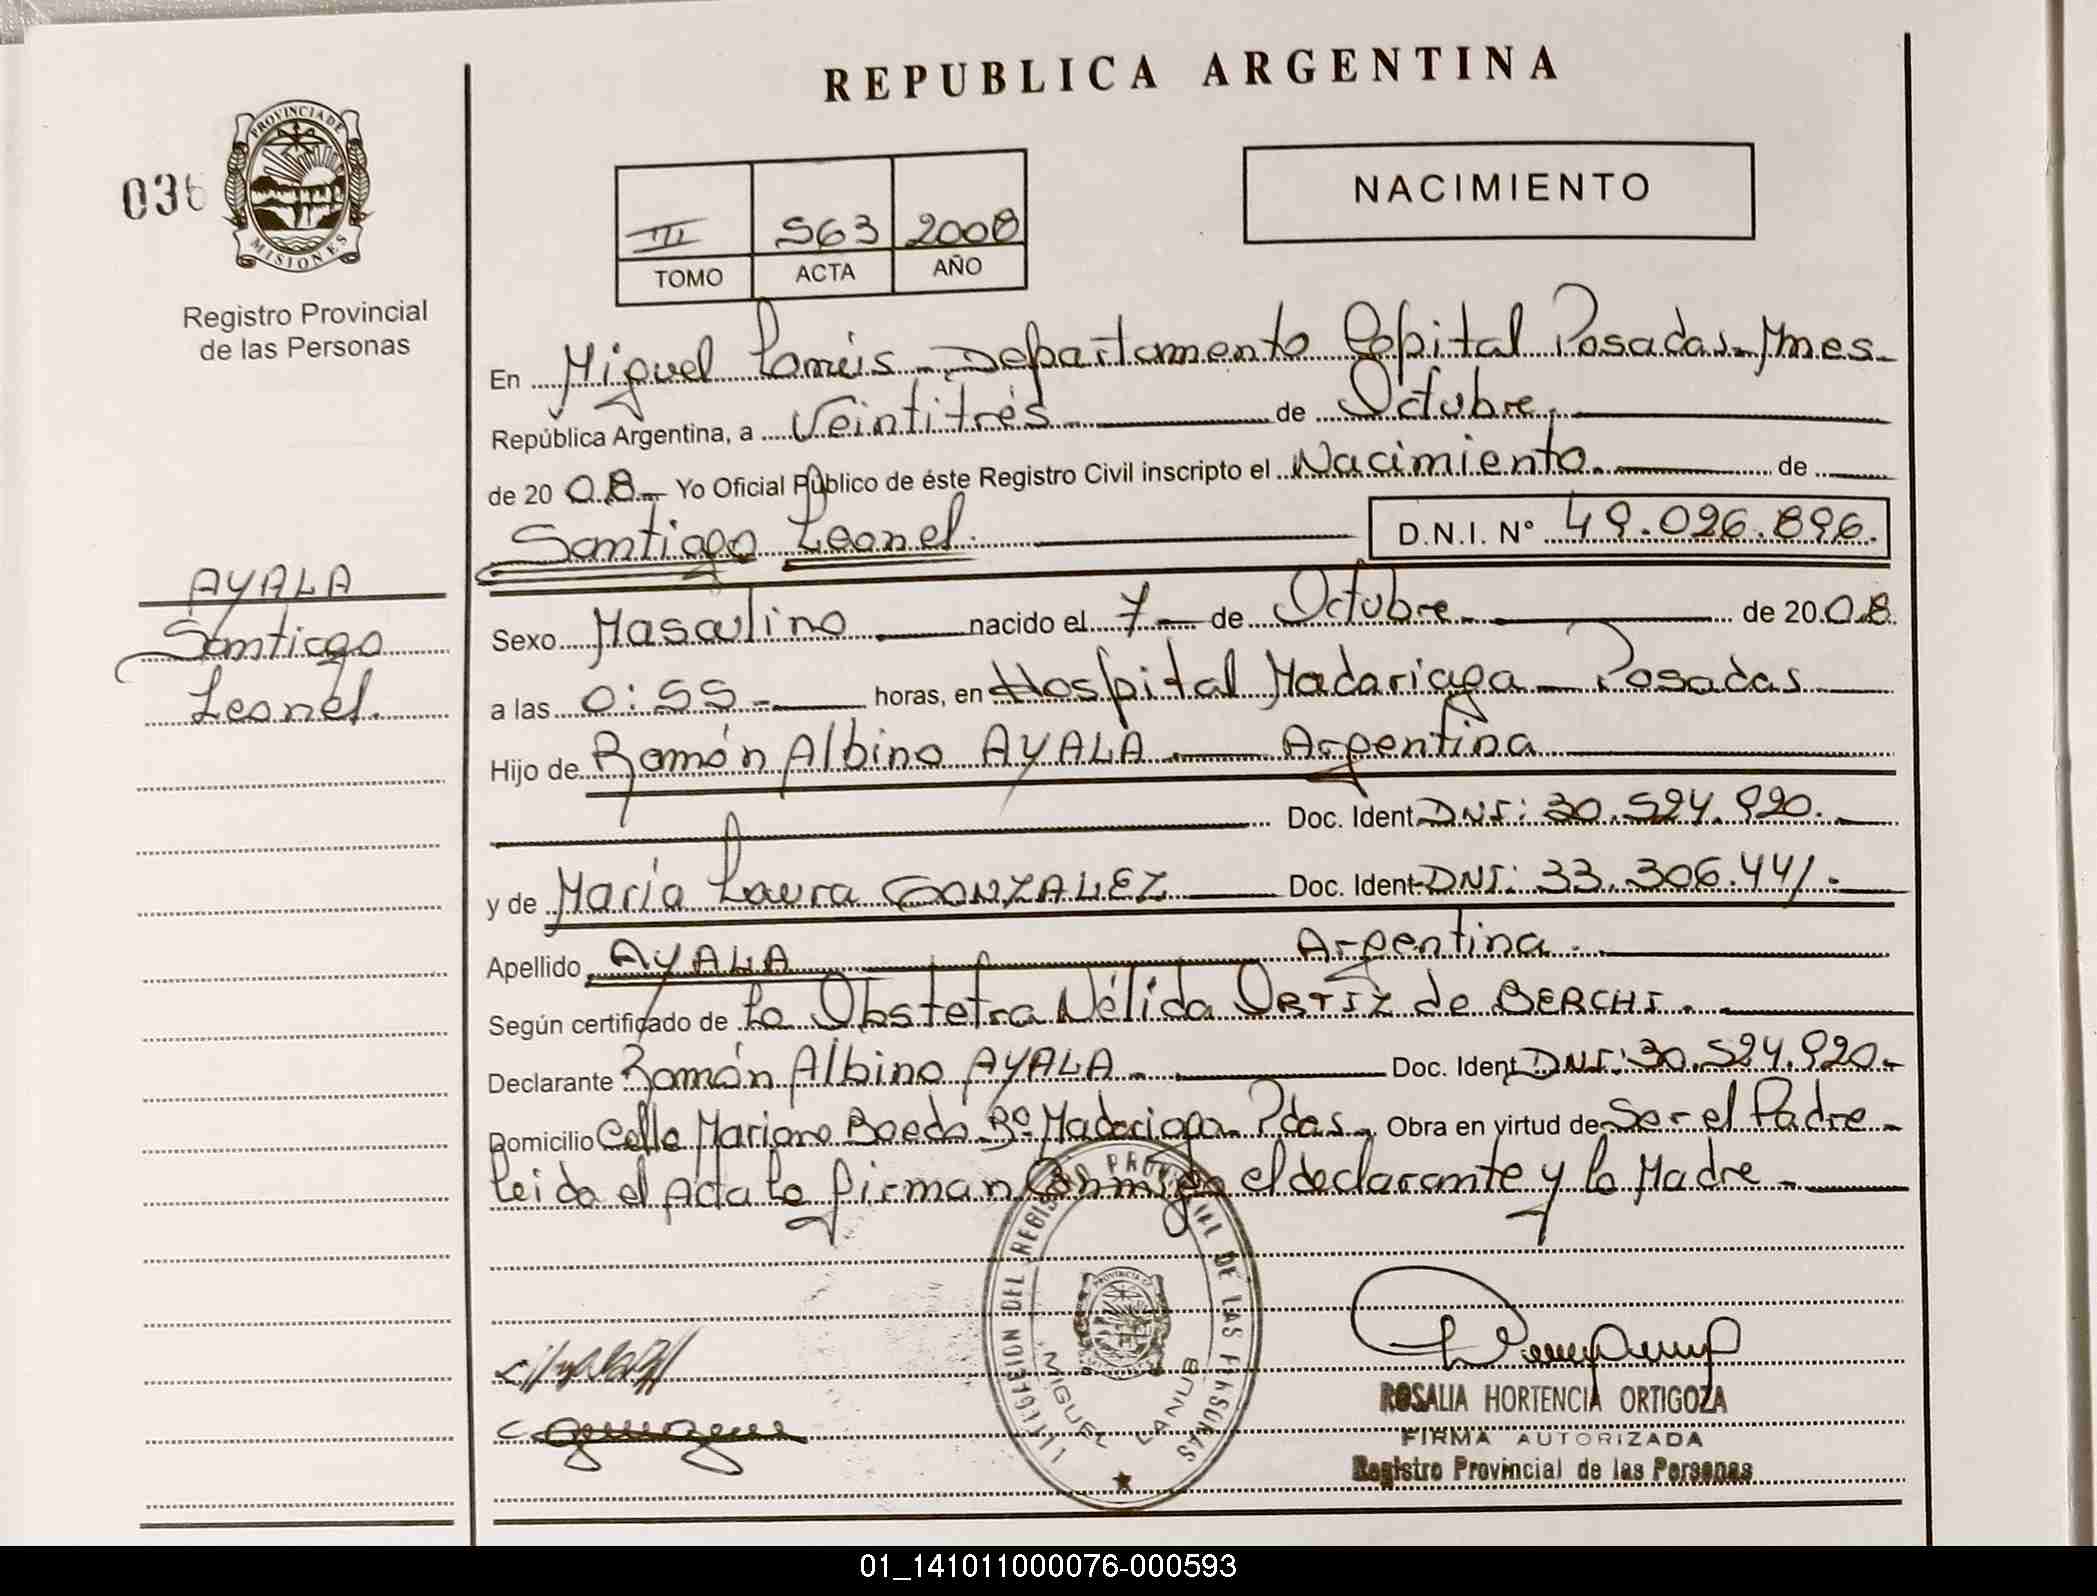 REPUBLICA ARGENTINA
PROVINCIA DE MISIONES
036
Registro Provincial
de las Personas
III 563 2008
TOMO ACTA AÑO
NACIMIENTO
En Miguel Lanús - Departamento Capital Posadas - Mnes -
República Argentina, a Veintitrés de Octubre,
de 2008 - Yo Oficial Público de éste Registro Civil inscripto el Nacimiento de
Santiago Leonel. D.N.I. Nº 49.026.896.
AYALA
Santiago
Leonel.
Sexo Masculino nacido el 7 - de Octubre de 2008
a las 0:55 - horas, en Hospital Madariaga - Posadas
Hijo de Ramón Albino AYALA Argentina
Doc. Ident. DNI: 30.524.920.
y de María Laura GONZALEZ Doc. Ident. DNI: 33.306.441.
Apellido AYALA Argentina.
Según certificado de la Obstetra Nélida ORTIZ de BERCHI.
Declarante Ramón Albino AYALA - Doc. Ident DNI: 30.524.920.
Domicilio Calle Mariano Boedo Bº Madariaga - Pdas - Obra en virtud de Ser el Padre -
Leida el Acta la firman Conmigo el declarante y la Madre -
DELEGACION DEL REGISTRO PROVINCIAL DE LAS PERSONAS
MIGUEL LANUS
ROSALIA HORTENCIA ORTIGOZA
FIRMA AUTORIZADA
Registro Provincial de las Personas
01_141011000076-000593